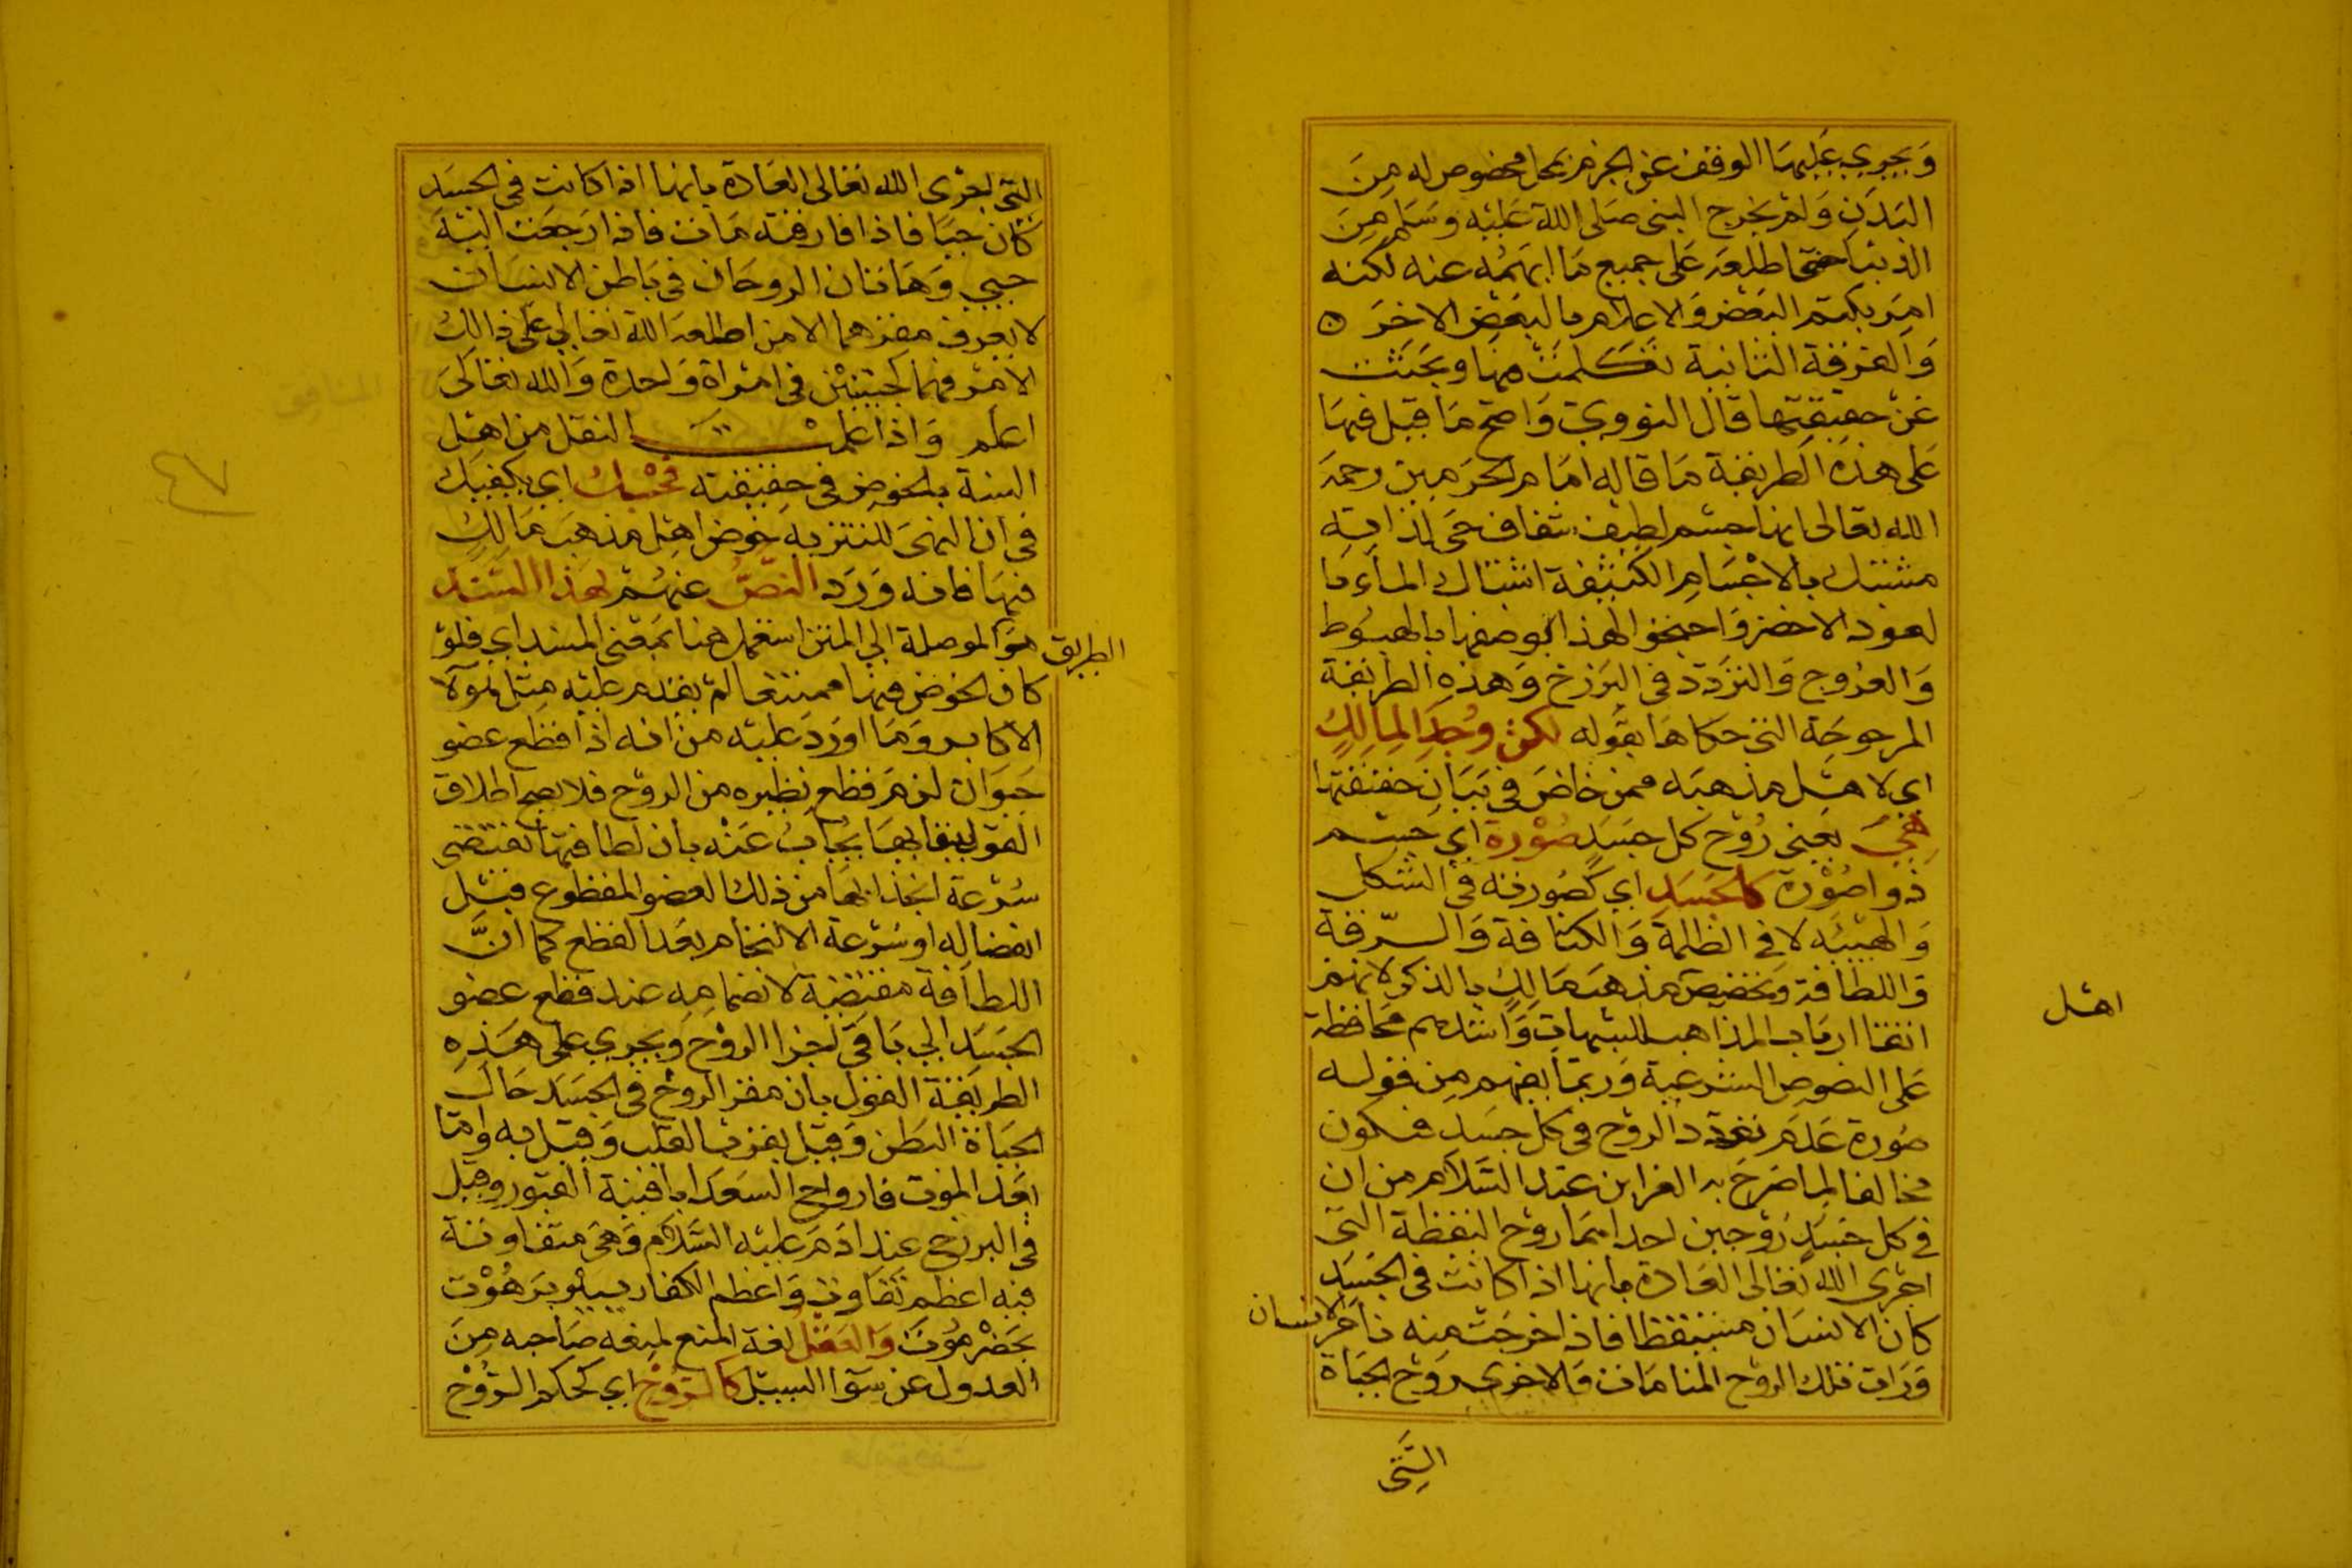 وَيجري عَليهَا الوقف عن الجزم بمحل مخصوص له مِنَ
البَدَنِ وَلم يَخرج النبي صَلى اللهُ عَليْه وسَلم مِنَ
الدنيا حتى اطلعَه عَلى جميع مَا ابهَمُه عنه لكنه
امِرَ بكتم البَعْض وَالاعلام بالبَعْض الاخرَ ٥
وَالفرقة الثانية تَكلمَتْ فيها وبَحَثَت
عَنْ حقيقتها قال النووي وَاصح مَا قيل فيهَا
عَلى هذه الطريقة مَا قاله امَام الحرَمين رحمَه
الله تعالى انها جسْم لطيف شفاف حَى لذاته
مشتبك بالاجْسَامِ الكثيفة اشتباك الماء با
لعود الاخضر وَاحتجوا لهذا بوصفها بالهبُوط
وَالعرُوج وَالتردّد في البَرزخ وَهذِه الطريقة
المرجوحَة التى حكاهَا بقوله لكنْ وُجِدَ لِمالِكٍ
اي لاهْل مذهبَه ممن خاضَ في بَيَانِ حقيقتها
هِيَ يَعني رُوْح كل جسَدٍ صُوْرة اي جسْم
ذو اصُوْرة كالجسَدِ اي كصُورته في الشكل
وَالهيْئه لا في الظلمة وَالكثافة وَالرّقة
وَاللطافة وَتخصيص مذهَب مَالِكٍ بالذكر لانهم
اتقنا ارباب المذاهب للشبهات وَاشدهم محَافظة
اهْل
عَلى النصوص الشرعية وَربمَا يفهم مِن قوله
صُورة عَدَم تعَدّد الروح في كل جسَدٍ فيكون
مخالفا لِما صَرحَ به العز ابن عَبْد السَّلاَم من ان
في كل جَسَدٍ رُوْحين احداهمَا روْح اليقظة التى
اجرى الله تعَالى العَادة بانها اذا كانت في الجَسَدِ
كان الانسَان مستيقظا فاذا خرجَت منه نامَ الانسان
وَرَات تلك الروْح المنامَات وَالاخري روْح الحيَاة
الَّتِى
التى اجرى الله تعَالى العَادة بانها اذا كانت في الجسَدِ
كان حيَا فاذا فارقته مَات فاذا رَجَعَت اليْهَ
حيي وَهَاتان الروحَان في بَاطن الانسَان
لا يعرف مقرهما الا من اطلعَه اللهُ تعَالي عَلى ذالِكَ
الامْر فهما كجنينيْن في امْراة وَاحدة وَالله تعَالىَ
اعلم وَاذا علمت النقل من اهْلِ
السنة بالخوض في حقيقته فحَسْبُك اي يكفيك
في ان النهيَ للتنزيه خوض اهْل مذهَب مَالِكٍ
فيهَا فانه وَرَد النصُّ عنهُمْ بهذا السَّنَد
الطريق هوَ الموصلة الي المتن استعمل هنا بمَعْنى المسند اي فلوْ
كان الخوض فيها ممتنعا لمْ يقدم عليْه مِثل هٰؤلا
الاكابر وَمَا اورَدَ عَليْه من انه اذا قطع عضو
حَيوَان لزمَ قطع نظيره من الروْح فلا يصح اطلاق
القوْل ببقايهَا يُجَابُ عَنْه بان لطافتهَا تقتضي
سُرْعة انجذابهَا من ذلك العضو المقطوع قبْل
انفصاله او سُرْعة الالتحام بعَد القطع كما انَّ
اللطافة مقتضية لانضمامِهِ عند قطع عضو
الجسَدِ الي بَاقي اجزا الروْح ويجري على هَذِهِ
الطريقة القول بان مقر الروْح في الجسَد حَال
الحيَاة البَطن وَقيل بقرب القلب وَقيل به وامَّا
بَعْد الموت فارواح السعَدا بافنية القبور وقيل
في البرزخ عند ادَمَ عَليْه السَّلاَم وَهيَ متفاوتة
فيه اعظم تفاوت وَاعظم الكفار بِبئر برَهُوْت
بحَضْرمَوْت وَالعَقل لغة المنع لمنعه صَاحبه مِنَ
العدول عن سَوَا السبيْل كالروْحِ اي كحكم الروْح